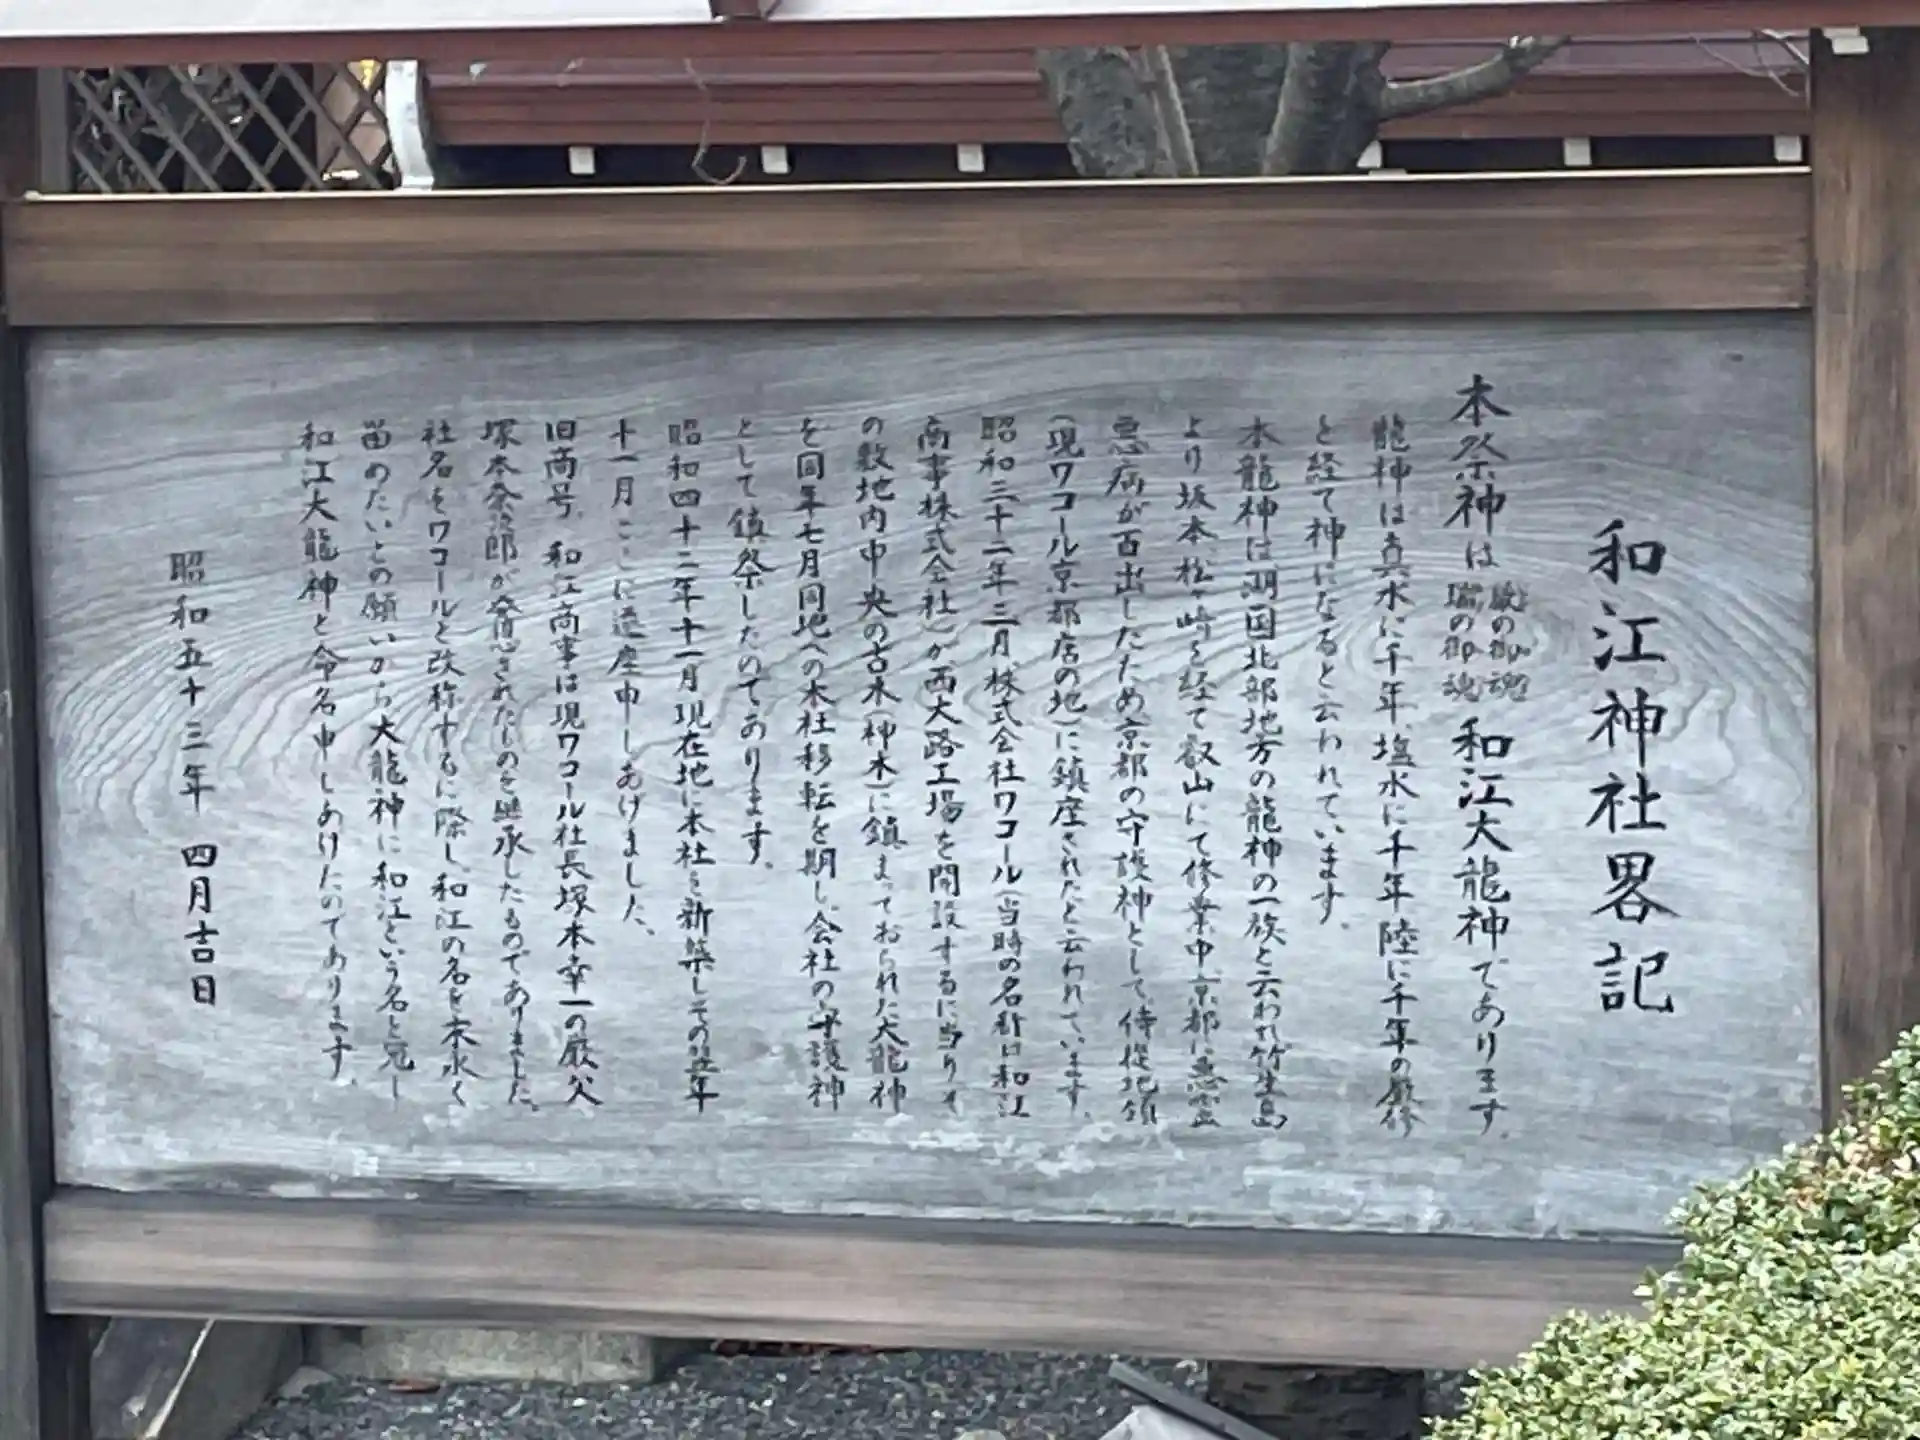 和江神社畧記
本祭神は 巌の御魂 瑞の御魂 和江大龍神であります。
龍神は真水に千年、塩水に千年、陸に千年の厳修
を経て神になると云われています。
本龍神は湖国北部地方の龍神の一族と云われ竹生島
より坂本、松ヶ崎を経て叡山にて修業中、京都に悪
悪病が百出したため京都の守護神として、侍従地領
(現ワコール京都店の地)に鎮座されたと云われています。
昭和三十二年三月、株式会社ワコール(当時の名称は和江
商事株式会社)が、西大路工場を開設するに当りそ
の敷地内中央の古木(神木)に鎮まっておられた大龍神
を同年七月同地への本社移転を期し、会社の守護神
として鎮祭したのであります。
昭和四十二年十一月現在地に本社を新築しその翌年
十一月ここに遷座申しあげました。
旧商号、和江商事は現ワコール社長塚本幸一の厳父
塚本粂次郎が発意されたものを継承したものでありました。
社名をワコールと改称するに際し、和江の名を末永く
留めたいとの願いから、大龍神に和江という名を冠し
和江大龍神と命名申しあげたのであります。
昭和五十三年 四月吉日